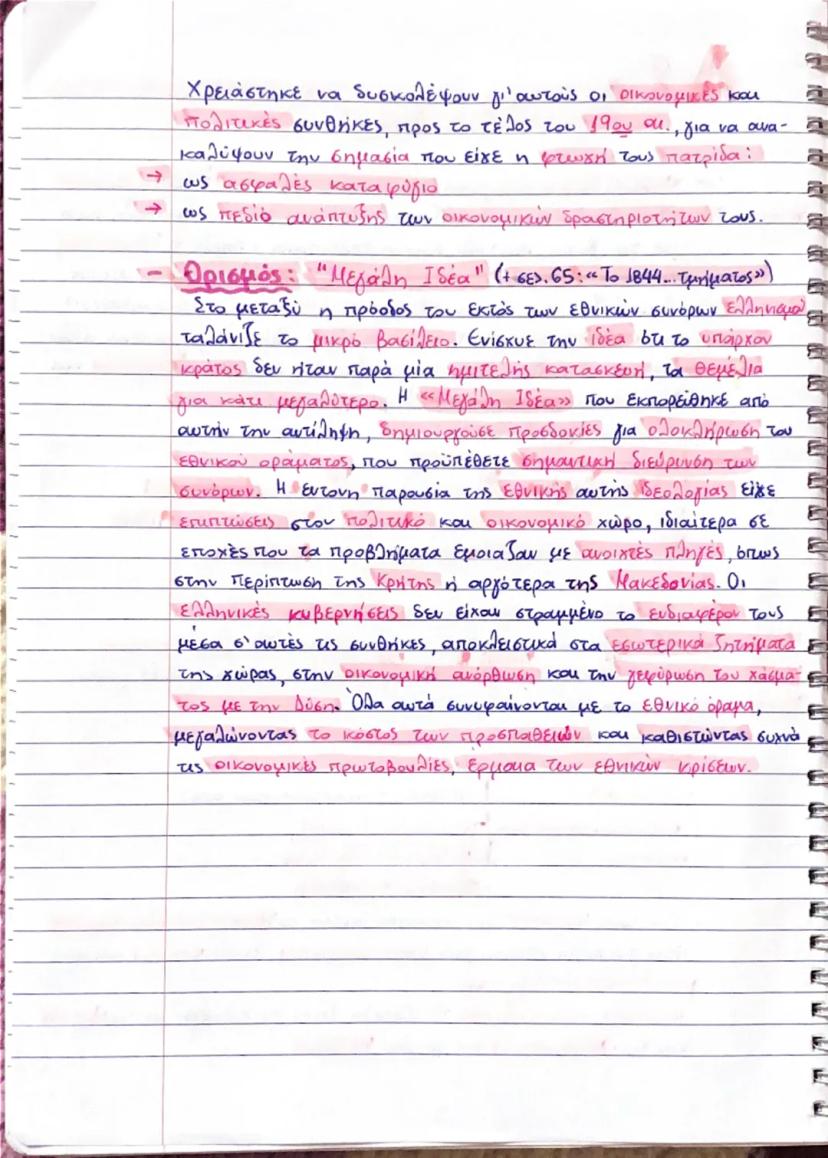 Χρειάστηκε να δυσκολέψουν γι' αυτούς οι οικονομικές και
πολιτικές συνθήκες, προς το τέλος του 19ου αι., για να ανα-
καλύψουν την σημασία που είχε η φτωχή τους πατρίδα:
→ ως ασφαλές καταφύγιο
→ ως πεδίο ανάπτυξης των οικονομικών δραστηριοτήτων τους.
- Ορισμός: "Μεγάλη Ιδέα" (+ σελ. 65: «Το 1844... τμήματος»)
Στο μεταξύ η πρόοδος του εκτός των εθνικών συνόρων ελληνισμού
ταλάνιζε το μικρό βασίλειο. Ενίσχυε την ιδέα ότι το υπάρχον
κράτος δεν ήταν παρά μία ημιτελής κατασκευή, τα θεμέλια
για κάτι μεγαλύτερο. Η «Μεγάλη Ιδέα» που εκπορεύθηκε από
αυτήν την αντίληψη, δημιουργούσε προσδοκίες για ολοκλήρωση του
εθνικού οράματος, που προϋπέθετε σημαντική διεύρυνση των
συνόρων. Η έντονη παρουσία της εθνικής αυτής ιδεολογίας είχε
επιπτώσεις στον πολιτικό και οικονομικό χώρο, ιδιαίτερα σε
εποχές που τα προβλήματα έμοιαζαν με ανοιχτές πληγές, όπως
στην περίπτωση της Κρήτης ή αργότερα της Μακεδονίας. Οι
ελληνικές κυβερνήσεις δεν είχαν στραμμένο το ενδιαφέρον τους
μέσα σ' αυτές τις συνθήκες, αποκλειστικά στα εσωτερικά ζητήματα
της χώρας, στην οικονομική ανόρθωση και την γεφύρωση του χάσμα-
τος με την Δύση. Όλα αυτά συνυφαίνονται με το εθνικό όραμα,
μεγαλώνοντας το κόστος των προσπαθειών και καθιστώντας συχνά
τις οικονομικές πρωτοβουλίες, έρμαια των εθνικών κρίσεων.